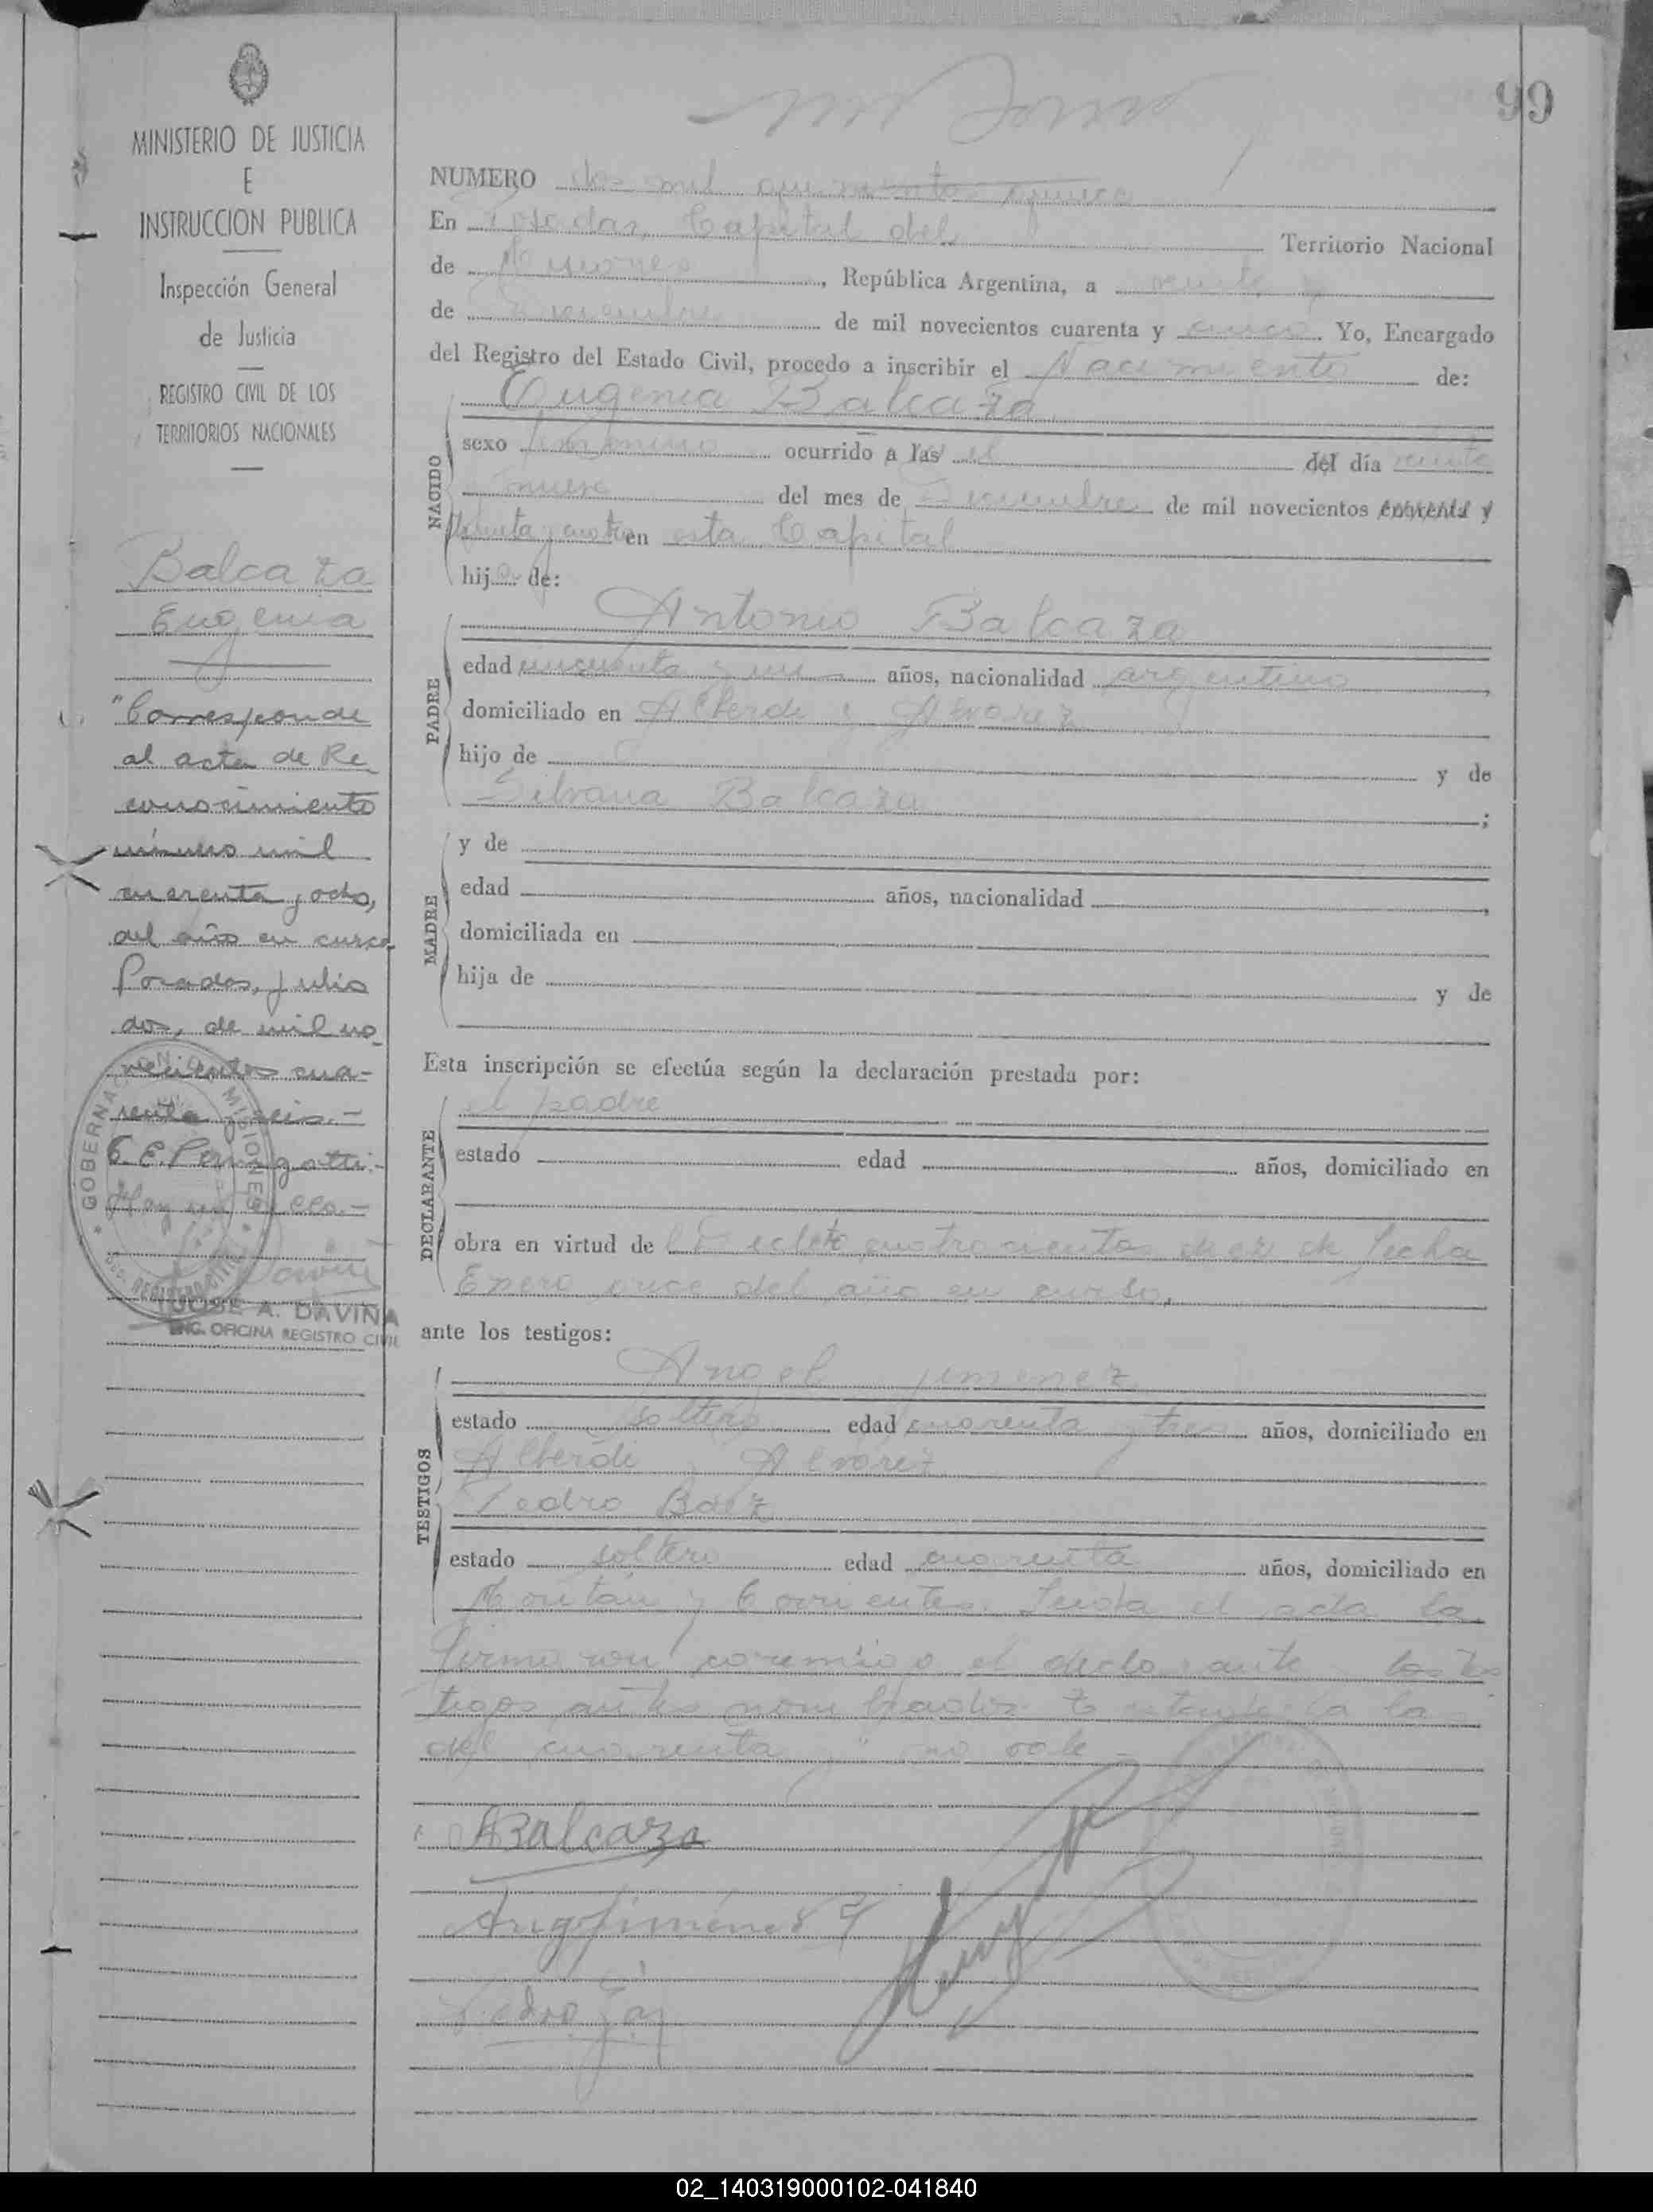 MINISTERIO DE JUSTICIA
E
INSTRUCCION PUBLICA
Inspección General
de Justicia
REGISTRO CIVIL DE LOS
TERRITORIOS NACIONALES
Balcaza
Eugenia
"Corresponde
al acta de Re
conocimiento
número mil
cuarenta y ocho,
del año en curso
Posadas, Julio
dos, de mil no
vecientos cua-
renta y seis.-
Hay un sello.-
GOBERNACION MISIONES
JOSE A. DAVIÑA
ENC. OFICINA REGISTRO CIVIL
99
NUMERO dos mil quinientos quince
En Posadas, Capital del Territorio Nacional
de Misiones, República Argentina, a veinte
de de mil novecientos cuarenta y cinco. Yo, Encargado
del Registro del Estado Civil, procedo a inscribir el Nacimiento de:
Eugenia Balcaza
NACIDO
sexo femenino ocurrido a las el del día veinte
nueve del mes de de mil novecientos cuarenta y
treinta y cuatro en esta Capital
hija de:
PADRE
Antonio Balcaza
edad cincuenta y un años, nacionalidad argentino,
domiciliado en Alberdi y Alvarez
hijo de y de
Silvana Balcaza;
MADRE
y de
edad años, nacionalidad,
domiciliada en
hija de y de
Esta inscripción se efectúa según la declaración prestada por:
DECLARANTE
el padre
estado edad años, domiciliado en
obra en virtud de Decreto cuatrocientos diez de fecha
Enero once del año en curso,
ante los testigos:
TESTIGOS
Angel Jimenez
estado soltero edad cuarenta y tres años, domiciliado en
Alberdi y Alvarez
Pedro Baez
estado soltero edad cuarenta años, domiciliado en
y Corrientes. Leida el acta la
firmaron conmigo el declarante los tes
tigos antes nombrados
del cuarenta y" no vale
ABalcaza
Ang Jiménes
Pedro
02_140319000102-041840